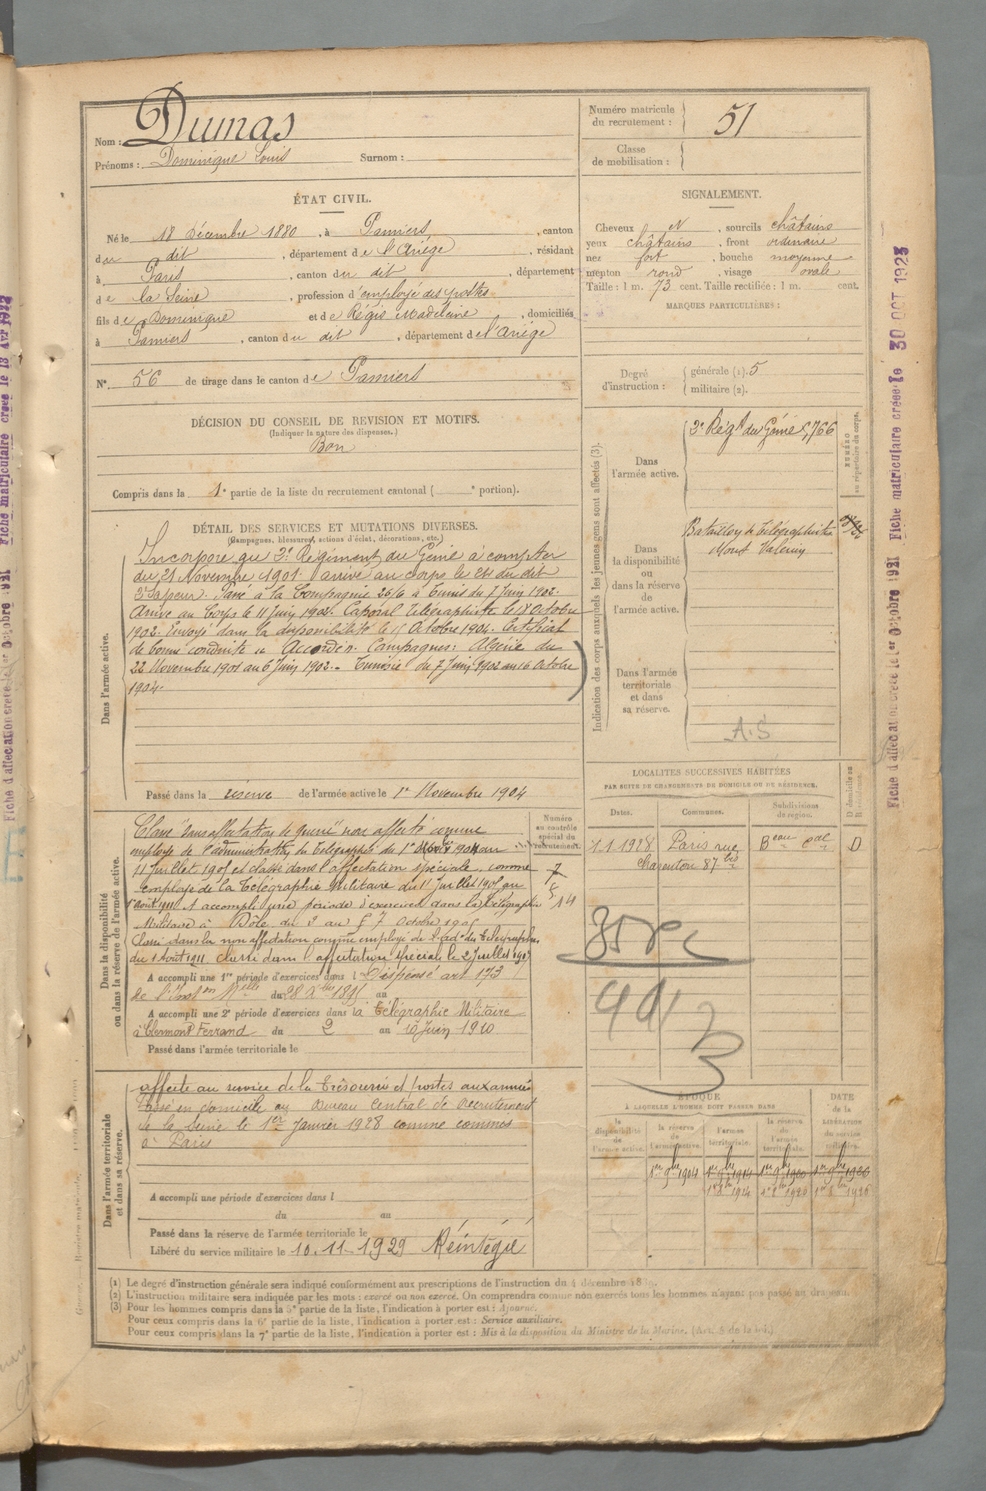 Nom : Dumas
Prénoms : Dominique Louis Surnom :
Numéro matricule du recrutement : 51
Classe de mobilisation :
ÉTAT CIVIL.
Né le 18 Décembre 1880, à Pamiers, canton
du dit, département de l'Ariège, résidant
à Paris, canton du dit, département
de la Seine, profession d'employé des postes
fils de Dominique et de Régis Madeleine, domiciliés
à Pamiers, canton du dit, département de l'Ariège
N°. 56 de tirage dans le canton de Pamiers
SIGNALEMENT.
Cheveux N, sourcils châtains
yeux châtains, front ordinaire
nez fort, bouche moyenne
menton rond, visage ovale
Taille : 1 m. 73 cent. Taille rectifiée : 1 m. cent.
MARQUES PARTICULIÈRES :
Degré d'instruction : générale (1). 5
militaire (2).
DÉCISION DU CONSEIL DE REVISION ET MOTIFS.
(Indiquer la nature des dispenses.)
Bon
Compris dans la 1e partie de la liste du recrutement cantonal ( e portion).
DÉTAIL DES SERVICES ET MUTATIONS DIVERSES.
(Campagnes, blessures, actions d'éclat, décorations, etc.)
Dans l'armée active.
Incorporé au 2e Régiment du Génie à compter
du 21 Novembre 1901 arrivé au corps le 21 du dit
2e Sapeur. Passé à la Compagnie 26/6 à Tunis du 7 Juin 1902.
Arrivé au Corps le 11 Juin 1902. Caporal Télégraphiste le 18 Octobre
1902. Envoyé dans la disponibilité le Octobre 1904. Certificat
de bonne conduite « Accordé ». Campagnes: Algérie du
22 Novembre 1901 au 6 Juin 1902. - Tunisie du 7 Juin 1902 au 16 Octobre
1904.
Passé dans la réserve de l'armée active le 1er Novembre 1904
Indication des corps auxquels les jeunes gens sont affectés (3).
NUMÉRO au répertoire du corps.
Dans l'armée active.
2e Régt du Génie 5,766
Dans la disponibilité ou dans la réserve de l'armée active.
Bataillon de Télégraphistes
Mont Valérien
Dans l'armée territoriale et dans sa réserve.
A.S
LOCALITÉS SUCCESSIVES HABITÉES
PAR SUITE DE CHANGEMENTS DE DOMICILE OU DE RÉSIDENCE.
Dates. Communes. Subdivisions de région. D domicile ou R résidence.
1.1.1928 Paris rue Beau Cal D
Charenton 87 bis
Dans la disponibilité ou dans la réserve de l'armée active.
Numéro au contrôle spécial du recrutement.
Classé "dans affectation de guerre" non affecté comme
employé de l'administration des télégraphes du 1er 1904 au
11 Juillet 1905 et classé dans l'affectation spéciale, comme
employé de la Télégraphie Militaire du 11 Juillet 1905 au
1er Août 1911. A accompli une période d'exercices dans la Télégraphie
Militaire à Dôle du au 7 Octobre
Classé dans la non affectation comme employé de l'adon des Télégraphes
du 1 Août 1911 Classé dans l'affectation spéciale le 2 juillet
A accompli une 1re période d'exercices dans l Dispensé art 173
de l'Inston Mlle du 28 Xbre 1895 au
A accompli une 2e période d'exercices dans la Télégraphie Militaire
à Clermont Ferrand du 2 au Juin 1910
Passé dans l'armée territoriale le
Dans l'armée territoriale et dans sa réserve.
affecté au service de la Trésorerie et postes aux armées
Passé en domicile au Bureau Central de recrutement
de la Seine le 1er Janvier 1928 comme commis
à Paris
A accompli une période d'exercices dans l
du au
Passé dans la réserve de l'armée territoriale le
Libéré du service militaire le 10.11.1929 Réintégré
ÉPOQUE
À LAQUELLE L'HOMME DOIT PASSER DANS
DATE de la LIBÉRATION du service militaire.
la disponibilité de l'armée active. la réserve de l'armée active. l'armée territoriale. la réserve de l'armée territoriale.
1er 9bre 1904 1er 9bre 1914 1er 9bre 1920 1er 9bre 1926
1er 8bre 1914 1er 8bre 1920 1er 8bre 1926
(1) Le degré d'instruction générale sera indiqué conformément aux prescriptions de l'instruction du 4 décembre
(2) L'instruction militaire sera indiquée par les mots : exercé ou non exercé. On comprendra comme non exercés tous les hommes n'ayant pas passé au drapeau.
(3) Pour les hommes compris dans la 5e partie de la liste, l'indication à porter est : Ajourné.
Pour ceux compris dans la 6e partie de la liste, l'indication à porter est : Service auxiliaire.
Pour ceux compris dans la 7e partie de la liste, l'indication à porter est : Mis à la disposition du Ministre de la Marine. (Art. de la loi.)
Fiche d'affectation créée le 1er Octobre 1921 Fiche matriculaire créée le 30 OCT 1923